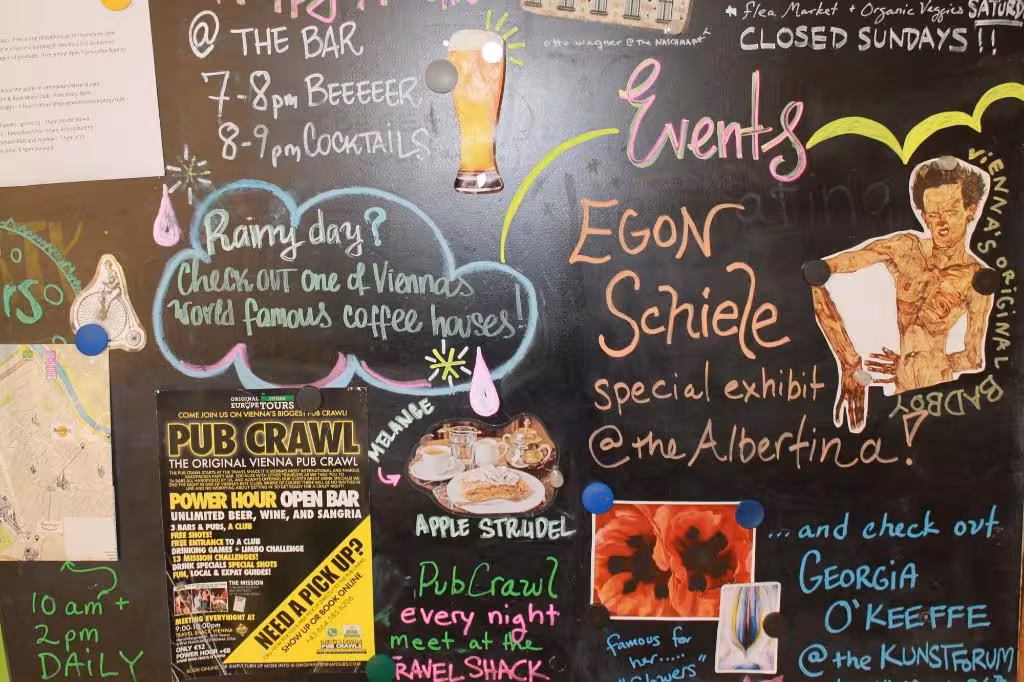 @ THE BAR
7-8pm BEEEEER
8-9pm COCKTAILS
otto wagner @ the NASCHMARKT
* flea Market + Organic Veggies SATURD
CLOSED SUNDAYS !!
Events
EGON
Schiele
special exhibit
@ the Albertina!
VIENNA'S ORIGINAL BADBOY
Rainy day?
Check out one of Vienna's
World famous coffee houses!
MELANGE
APPLE STRUDEL
ORIGINAL
EUROPE TOURS
VIENNA
COME JOIN US ON VIENNA'S BIGGEST PUB CRAWL!
PUB CRAWL
THE ORIGINAL VIENNA PUB CRAWL
POWER HOUR OPEN BAR
UNLIMITED BEER, WINE, AND SANGRIA
3 BARS & PUBS, A CLUB
FREE SHOTS!
FREE ENTRANCE TO A CLUB
DRINKING GAMES + LIMBO CHALLENGE
13 MISSION CHALLENGES!
DRINK SPECIALS SPECIAL SHOTS
FUN, LOCAL & EXPAT GUIDES!
THE MISSION
MEETING EVERYNIGHT AT
9:00-10:00pm
TRAVEL SHACK VIENNA
ONLY €12
POWER HOUR +€8
NEED A PICK UP?
SHOW UP OR BOOK ONLINE
10 am +
2 pm
DAILY
PubCrawl
every night
meet at the
RAVEL SHACK
...and check out
GEORGIA
O'KEEFFE
@ the KUNSTFORUM
famous for
her.....